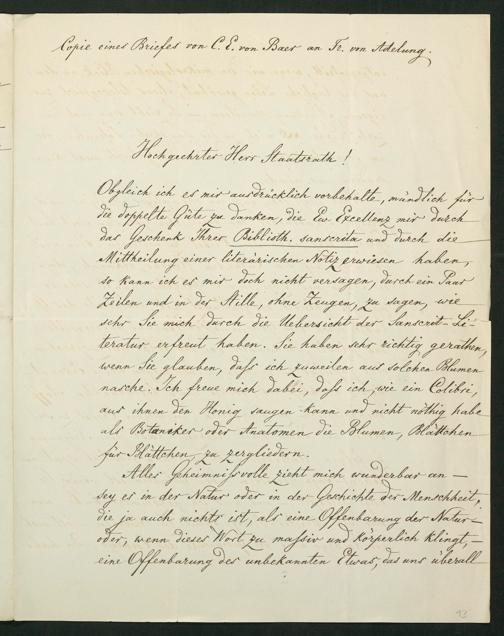 Copie eines Briefes von C. E. von Baer an Fr. von Adelung.
Hochgeehrter Herr Staatsrath!
Obgleich ich es mir ausdrücklich vorbehalte, mündlich für
die doppelte Güte zu danken, die Ew Excellenz mir durch
das Geschenk Ihrer Biblioth. sanscrita und durch die
Mittheilung einer literärischen Notiz erwiesen haben,
so kann ich es mir doch nicht versagen, durch ein Paar
Zeilen und in der Stille, ohne Zeugen, zu sagen, wie
sehr Sie mich durch die Uebersicht der Sanscrit-Li-
teratur erfreut haben. Sie haben sehr richtig gerathen,
wenn Sie glauben, daß ich zuweilen aus solchen Blumen
nasche. Ich freue mich dabei, daß ich, wie ein Colibri,
aus ihnen den Honig saugen kann und nicht nöthig habe
als Botaniker oder Anatomen die Blumen, Blättchen
für Blättchen, zu zergliedern.
Alles Geheimnißvolle zieht mich wunderbar an —
sey es in der Natur oder in der Geschichte der Menschheit,
die ja auch nichts ist, als eine Offenbarung der Natur —
oder, wenn dieses Wort zu massiv und körperlich klingt, —
eine Offenbarung des unbekannten Etwas, das uns überall
93